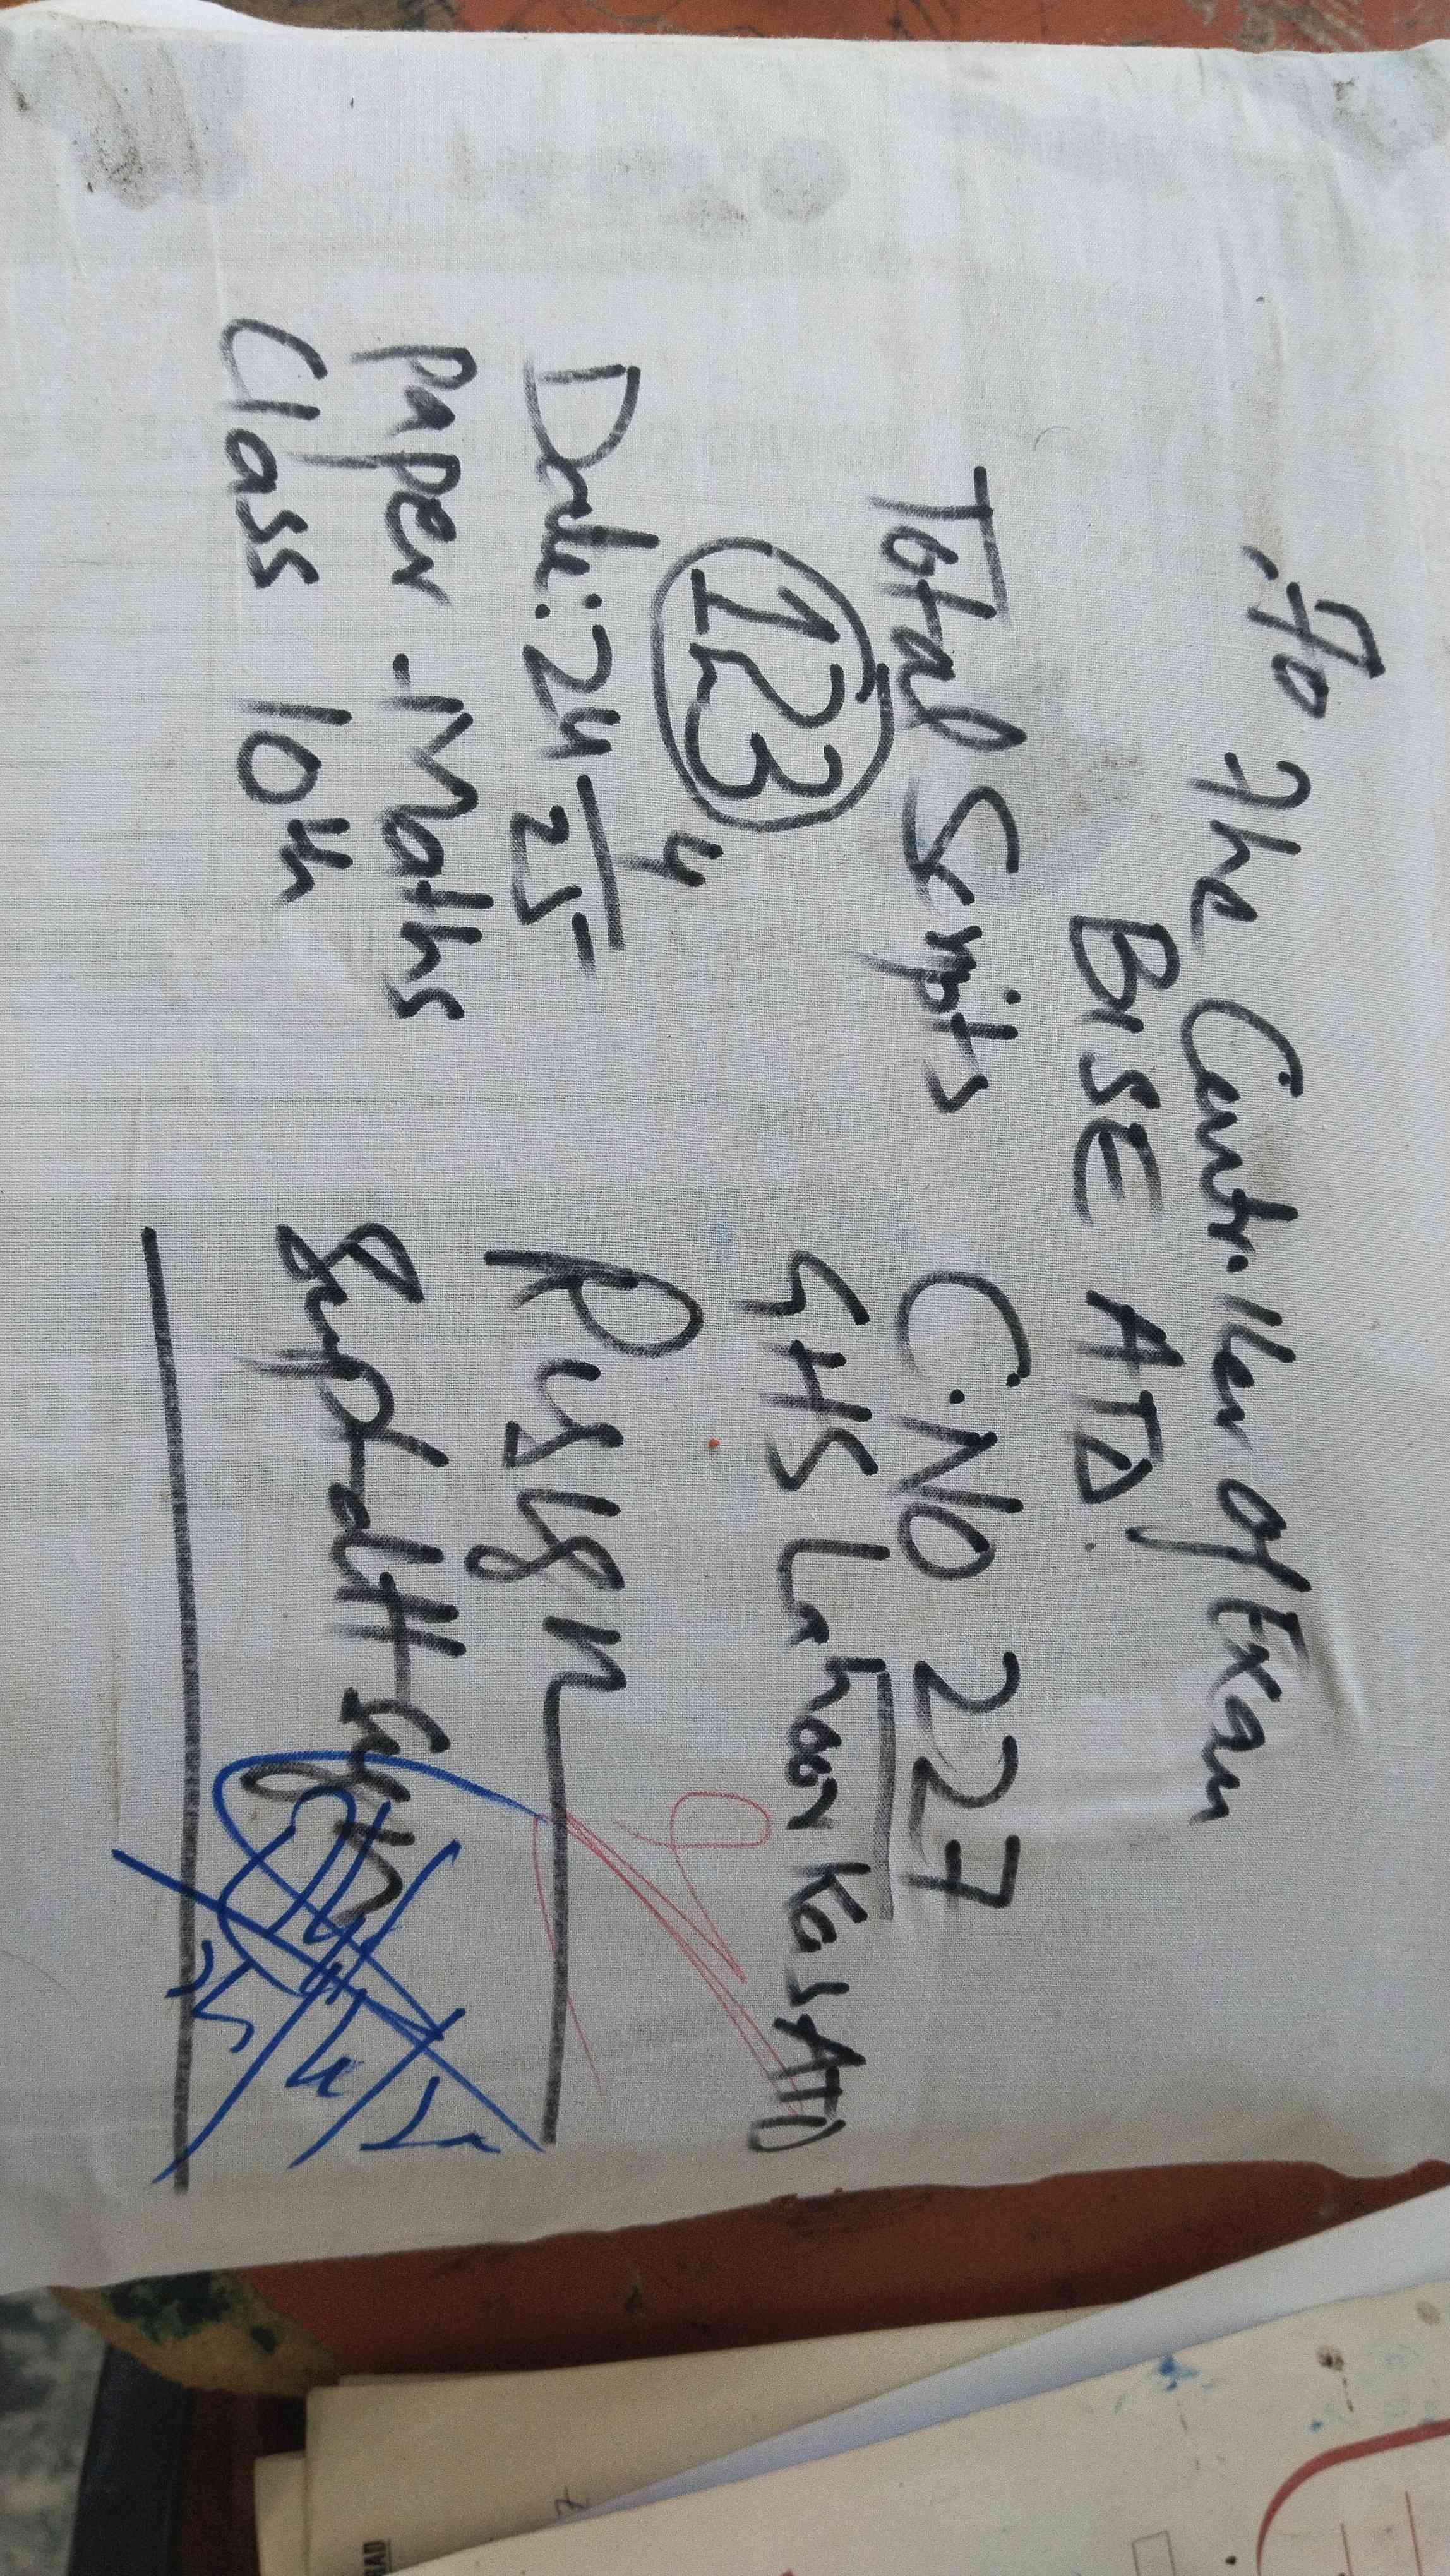 To The Controller of Exam
BISE ATD
Total Scripts
123
Date: 24/4
25
Paper - Maths
Class 10th
C.No 227
GHS Lahoor Kas ATD
R.I Sign
Supdtt Sign
24/4/25
BAD